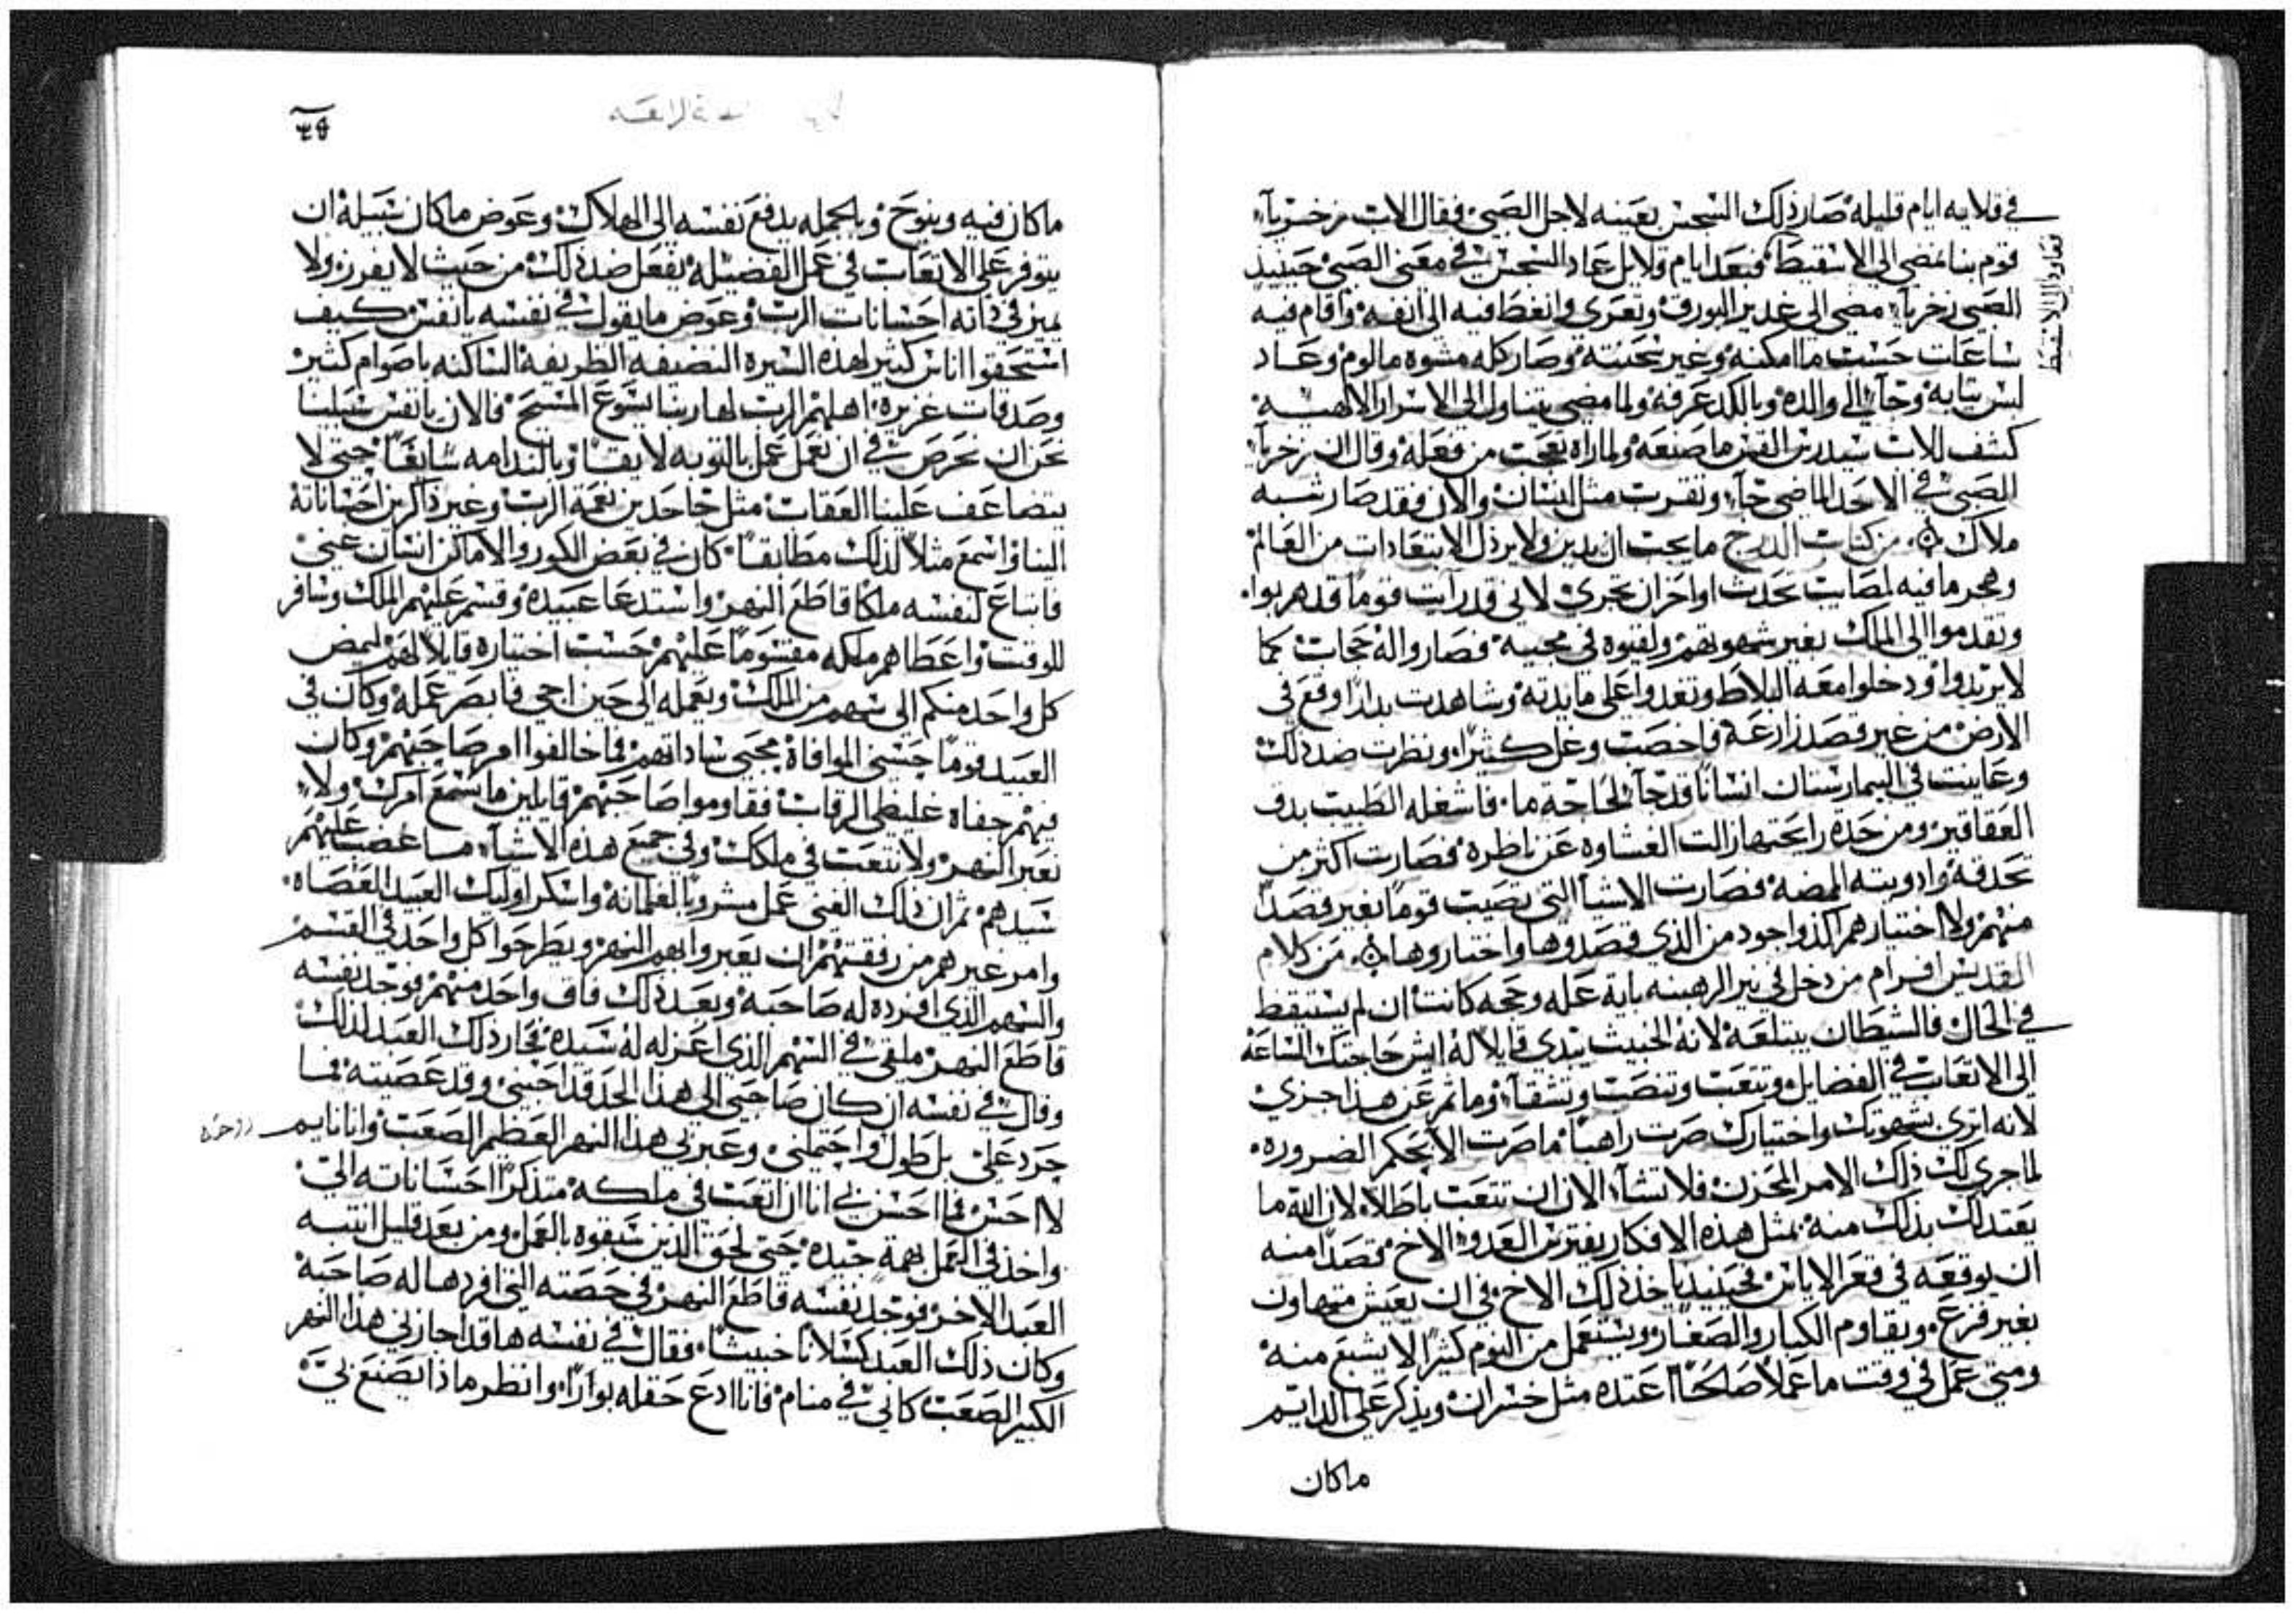 في قلايه ايام قليلة صار ذلك السجس بعينه لاجل الصبي فقال الاب زخريآ
قوم بنا نمضي الى الاسقيط فبعد ايام قلايل عاد السجس في معنى الصبي حينيد
تعاود الى الاسقيط
الصبي زخريآ مضى الى غدير البورق وتعرى وانغط فيه الى انفه واقام فيه
ساعات حسب ما امكنه وغير سحنته وصار كله مشوه مالوم وعاد
لبس ثيابه وجآ الى والده وبالكد عرفه ولما مضى يتناول الى الاسرار الالهيه
كشف للاب سيدرس القس ما صنعه ولما راه تعجب من فعله وقال ان زخريآ
الصبي في الاحد الماضي جآ وتقرب مثل انسان والان فقد صار شبه
ملاك من كتاب الدرج ما يجب ان يدين ولا يرذل الابتعادات من العالم
وهجر ما فيه لمصايب تحدث او احزان تجري لاني قد رايت قوما قد هربوا
وتقدموا الى الملك بغير شهوتهم ولقيوه في مجيه فصاروا له حجاب كما
لا يريدوا ودخلوا معه البلاط وتغدوا على مايدته وشاهدت بدارا وقع في
الارض من غير قصد زارعه فاخصب وغل كثيرا ونظرت ضد ذلك
وعاينت في البيمارستان انسانا قد جآ لحاجة ما فاشغله الطبيب بدق
العقاقير ومن حدة رايحتها زالت الغشاوه عن ناظره فصارت اكثر من
تحدقه وادويته الممضه فصارت الاشيآ التي تصيب قوما بغير قصد
منهم ولا اختيارهم اكد واجود من الذي قصدوها واختاروها من كلام
القديس افرام من دخل في نير الرهبنه باية عله وحجه كانت ان لم يستيقظ
في الحال فالشيطان يبتلعه لانه الخبيث يبتدي قايلا له ايش حاجتك الساعه
الى الاتعاب في الفضايل وتتعب وتنصب وتشقآ وما ثم عن هذا جزي
لانه اترى بشهوتك واختيارك صرت راهبا ما صرت الا بحكم الضروره
لما جرى لك ذلك الامر المحزن فلا تشآ الان ان تتعب باطلا لان الله ما
يعتد لك بذلك منه بمثل هذه الافكار يفترس العدو الاخ قصدا منه
ان يوقعه في قعر الاياس فحينيد ياخذ ذلك الاخ في ان يعيش متهاون
بغير فزع ويقاوم الكبار والصغار ويستعمل من النوم كثيرا لا يشبع منه
ومتى عمل في وقت ما عملا صالحا اعتده مثل خسران ويذكر على الدايم
ما كان
ما كان فيه وينوح وبالجمله يدفع نفسه الى الهلاك وعوض ما كان سبيله ان
يتوفر على الاتعاب في عمل الفضيله يفعل ضد ذلك من حيث لا يفرز ولا
يميز في ذاته احسانات الرب وعوض ما يقول في نفسه يا نفس كيف
استحقوا اناس كثير لهذه السيره النضيفه الظريفه الساكنه باصوام كثير
وصدقات غزيره اهلهم الرب لها ربنا يسوع المسيح فالان يا نفس سبيلنا
نحن ان نحرص في ان نعمل عمل بالتوبه لايقا وبالندامه سايغا حتى لا
يتضاعف علينا العقاب مثل جاحدين نعمة الرب وغير ذاكرين احساناته
الينا واسمع مثلا لذلك مطابقا كان في بعض الكور والاماكن انسان غني
فابتاع لنفسه ملكا قاطع النهر واستدعا عبيده وقسم عليهم الملك وسافر
للوقت واعطاهم ملكه مقسوما عليهم حسب اختياره قايلا لهم ليمض
كل واحد منكم الى سهم من الملك ويعمله الى حين اجي فابصر عمله وكان في
العبيد قوما حسني الموافاة محبي ساداتهم فما خالفوا امر صاحبهم وكان
فيهم جفاه غليظي الرقاب فقاوموا صاحبهم قايلين ما نسمع امرك ولا
نعبر النهر ولا نتعب في ملكك وفي جميع هذه الاشيآ ما غضب عليهم
سيدهم ثم ان ذلك الغني عمل مشروبا لغلمانه واسكر اوليك العبيد العصاه
وامر غيرهم من رفقتهم ان يعبروا بهم النهر ويطرحوا كل واحد في القسم
والسهم الذي افرده له صاحبه وبعد ذلك فاق واحد منهم فوجد نفسه
قاطع النهر ملقي في السهم الذي اعزله له سيده فحار ذلك العبد لذلك
وقال في نفسه ان كان صاحبي الى هذا الحد قد احبني وقد عصيته فما
جرد علي بل طول واحتملني وعبر بي هذا النهر العظيم الصعب وانا نايم
لا احس فما احسن بي انا ان اتعب في ملكه متذكرا احساناته الي
واخذ في العمل بهمة جيده حتى لحق الذين سبقوه بالعمل ومن بعد قليل انتبه
العبد الاخر فوجد نفسه قاطع النهر في حصته التي افردها له صاحبه
وكان ذلك العبد كسلانا خبيثا فقال في نفسه ها قد اجازني هذا النهر
الكبير الصعب كاني في منام فانا ادع حقله بوارا وانظر ماذا يصنع بي